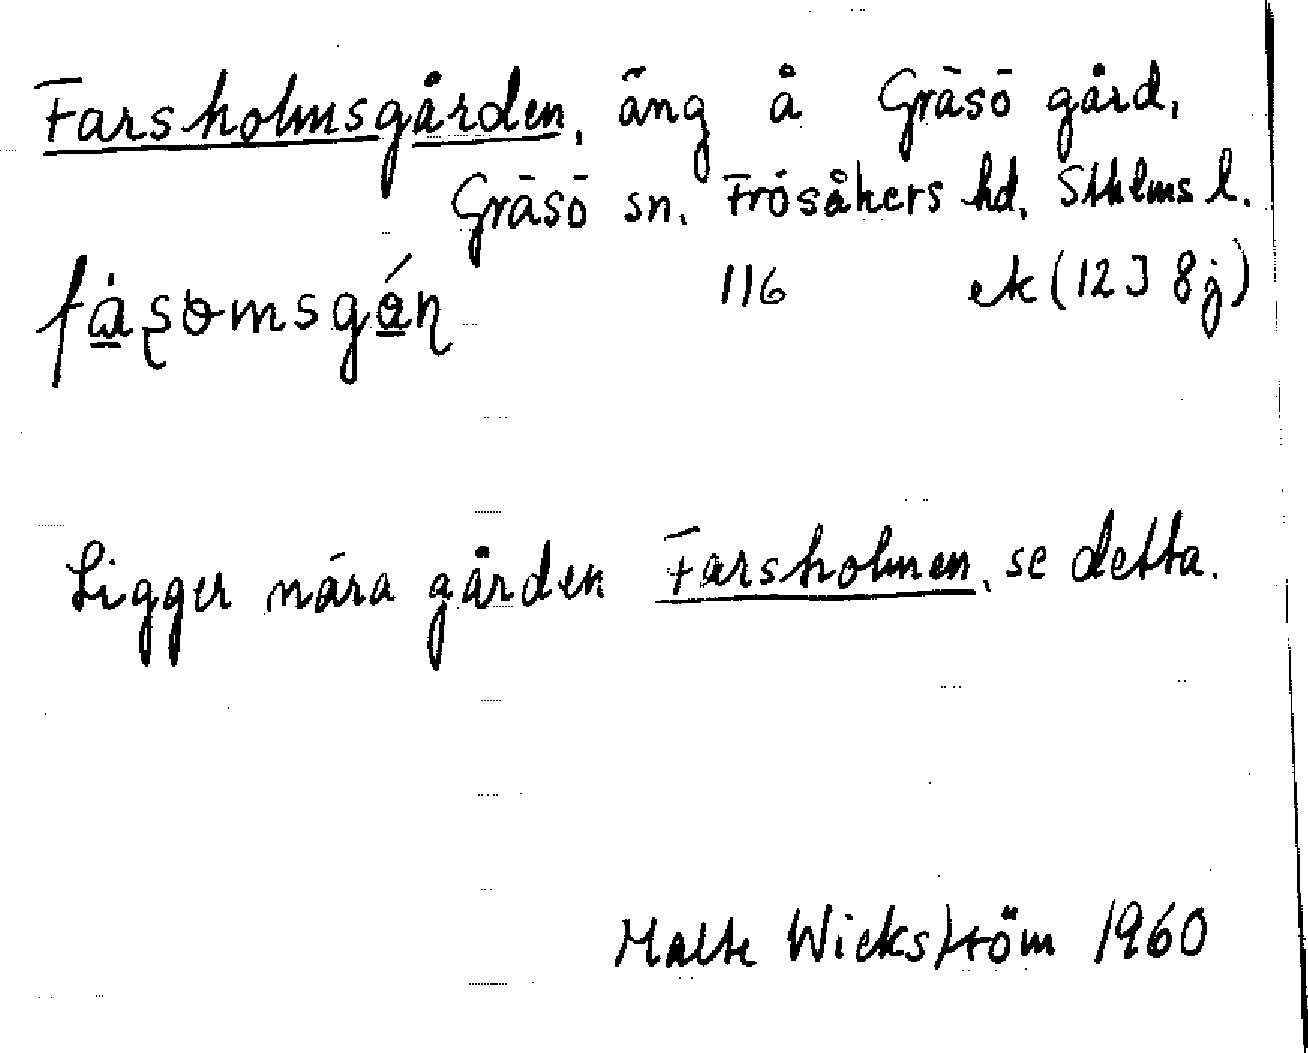 Farsholmsgården, äng å Gräsö gård,
Gräsö sn. Frösåkers hd. Sthlms l.
fàsomsgán 116 ek (12 J 8 j)
Ligger nära gården Farsholmen, se detta.
Malte Wickström 1960